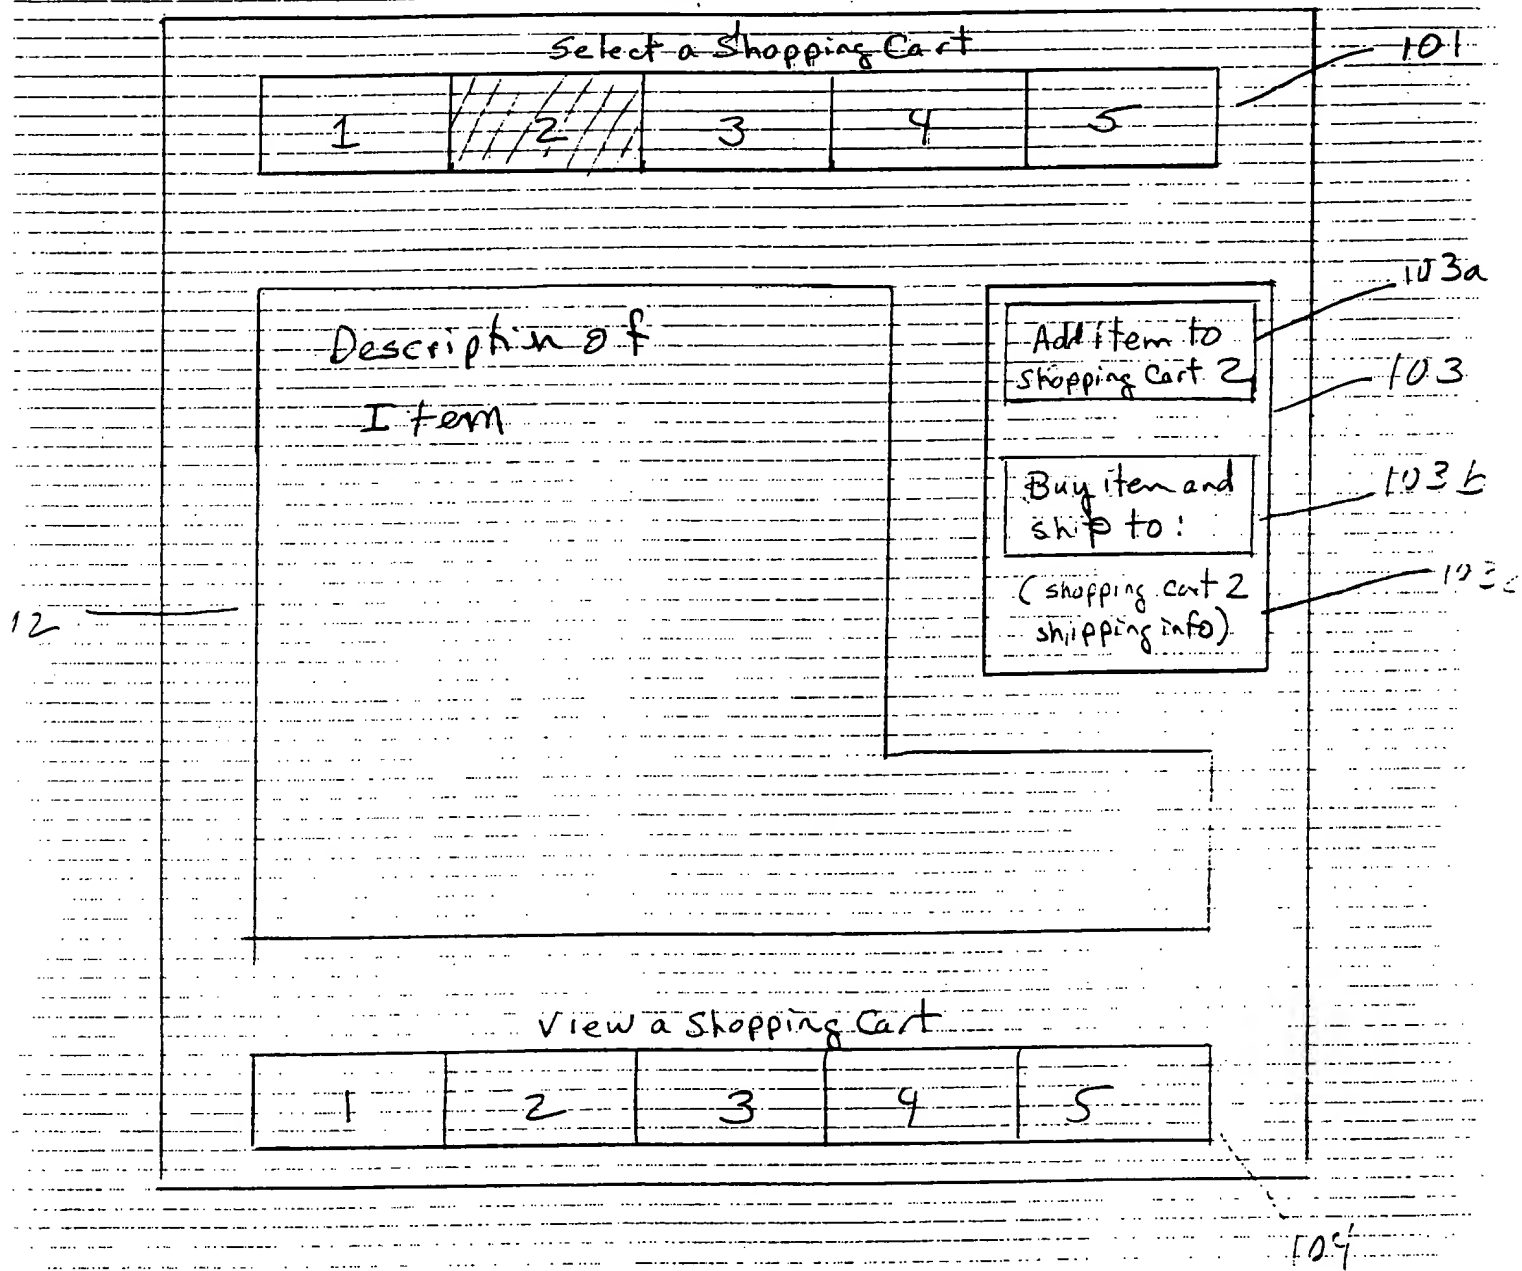 Select a Shopping Cart
101
1 2 3 4 5
103a
Description of
Item
Add item to
shopping cart 2
103
Buy item and
ship to:
103b
(shopping cart 2
shipping info)
103c
12
View a Shopping Cart
1 2 3 4 5
104